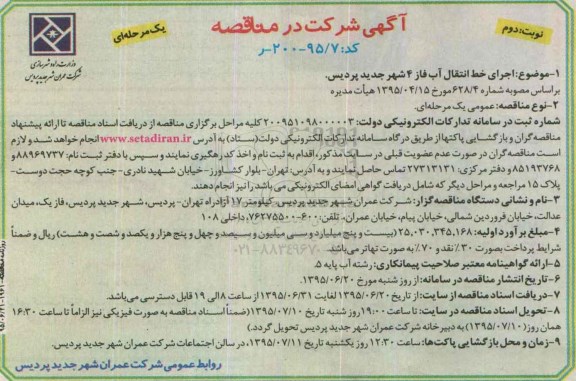 نوبت: دوم
آگهی شرکت در مناقصه
یک مرحله‌ای
کد: ۹۵/۷-۲۰۰-ر
وزارت راه و شهرسازی
شرکت عمران شهر جدید پردیس
۱-موضوع: اجرای خط انتقال آب فاز ۴ شهر جدید پردیس.
براساس مصوبه شماره ۶۲۸/۴ مورخ ۱۳۹۵/۰۴/۱۵ هیأت مدیره
۲-نوع مناقصه: عمومی یک مرحله‌ای.
شماره ثبت در سامانه تدارکات الکترونیکی دولت: ۲۰۰۹۵۱۰۹۸۰۰۰۰۰۳ کلیه مراحل برگزاری مناقصه از دریافت اسناد مناقصه تا ارائه پیشنهاد
مناقصه‌گران و بازگشایی پاکتها از طریق درگاه سامانه تدارکات الکترونیکی دولت (ستاد) به آدرس www.setadiran.ir انجام خواهد شد و لازم
است مناقصه‌گران در صورت عدم عضویت قبلی در سایت مذکور، اقدام به ثبت نام و اخذ کد رهگیری نمایند و سپس با دفتر ثبت نام: ۸۸۹۶۹۷۳۷ و
۸۵۱۹۳۷۶۸ و دفتر مرکزی: ۲۷۳۱۳۱۳۱ تماس حاصل نمایند و به آدرس: تهران-بلوار کشاورز-خیابان شهید نادری-جنب کوچه حجت دوست-
پلاک ۱۵ مراجعه و مراحل دیگر که شامل دریافت گواهی امضای الکترونیکی می‌باشد را نیز انجام دهند.
۳-نام و نشانی دستگاه مناقصه‌گزار: شرکت عمران شهر جدید پردیس. کیلومتر ۱۷ آزادراه تهران-پردیس، شهر جدید پردیس، فاز یک، میدان
عدالت، خیابان فروردین شمالی، خیابان پیام، خیابان عمران. تلفن: ۶۰۰-۷۶۲۷۵۵۰۰، داخلی ۱۰۸
۴-مبلغ برآورد اولیه: ۲۵,۰۳۰,۳۴۵,۱۶۸ (بیست و پنج میلیارد و سی میلیون و سیصد و چهل و پنج هزار و یکصد و شصت و هشت) ریال و ضمناً
شرایط پرداخت بصورت ۳۰٪ نقد و ۷۰٪ به صورت تهاتر می‌باشد.
۵-ارائه گواهینامه معتبر صلاحیت پیمانکاری: رشته آب پایه ۵.
۶-تاریخ انتشار مناقصه در سامانه: از روز شنبه مورخ ۱۳۹۵/۰۶/۲۰.
۷-دریافت اسناد مناقصه از سایت: از تاریخ ۱۳۹۵/۰۶/۲۰ لغایت ۱۳۹۵/۰۶/۳۱ از ساعت ۸ الی ۱۹ قابل دسترسی می‌باشد.
۸-تحویل اسناد مناقصه در سایت: تا ساعت ۱۹:۰۰ روز شنبه تاریخ ۱۳۹۵/۰۷/۱۰ (ضمناً اسناد مناقصه به صورت فیزیکی نیز الزاماً تا ساعت ۱۶:۳۰
همان روز (۱۳۹۵/۰۷/۱۰) به دبیرخانه شرکت عمران شهر جدید پردیس تحویل گردد.)
۹-زمان و محل بازگشایی پاکت‌ها: ساعت ۱۲:۳۰ روز یکشنبه تاریخ ۱۳۹۵/۰۷/۱۱، در سالن اجتماعات شرکت عمران شهر جدید پردیس.
روابط عمومی شرکت عمران شهر جدید پردیس
۰۲۱-۸۸۳۴۹۶۷۰